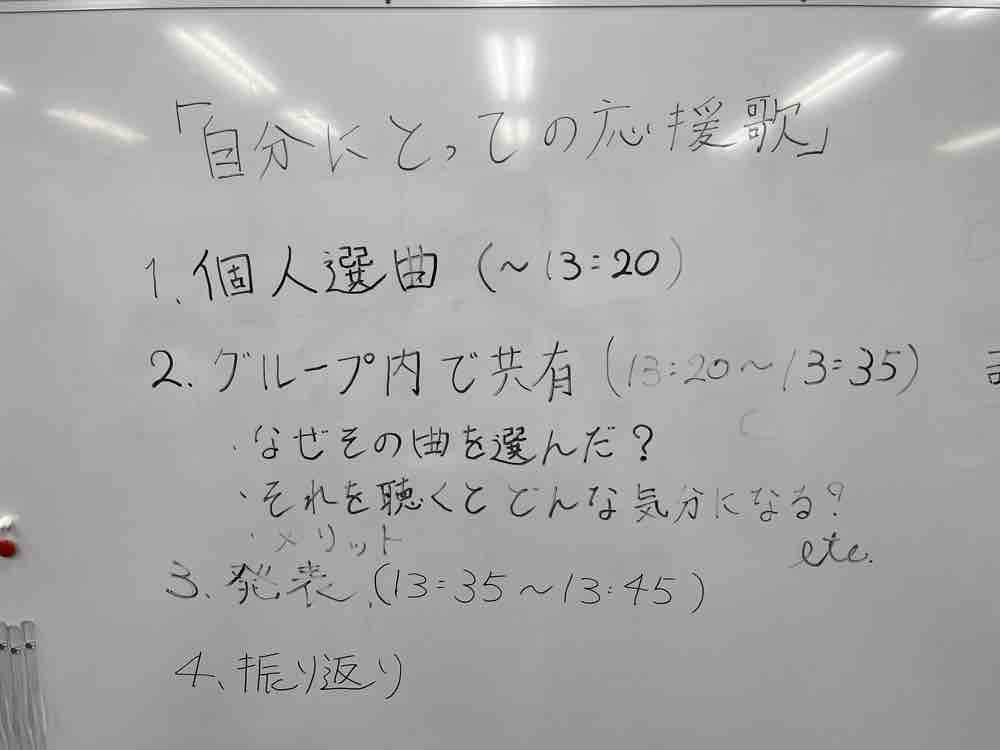 「自分にとっての応援歌」
1、個人選曲 (～13:20)
2、グループ内で共有 (13:20～13:35)
・なぜその曲を選んだ?
・それを聴くとどんな気分になる?
・メリット
etc.
3、発表 (13:35～13:45)
4、振り返り